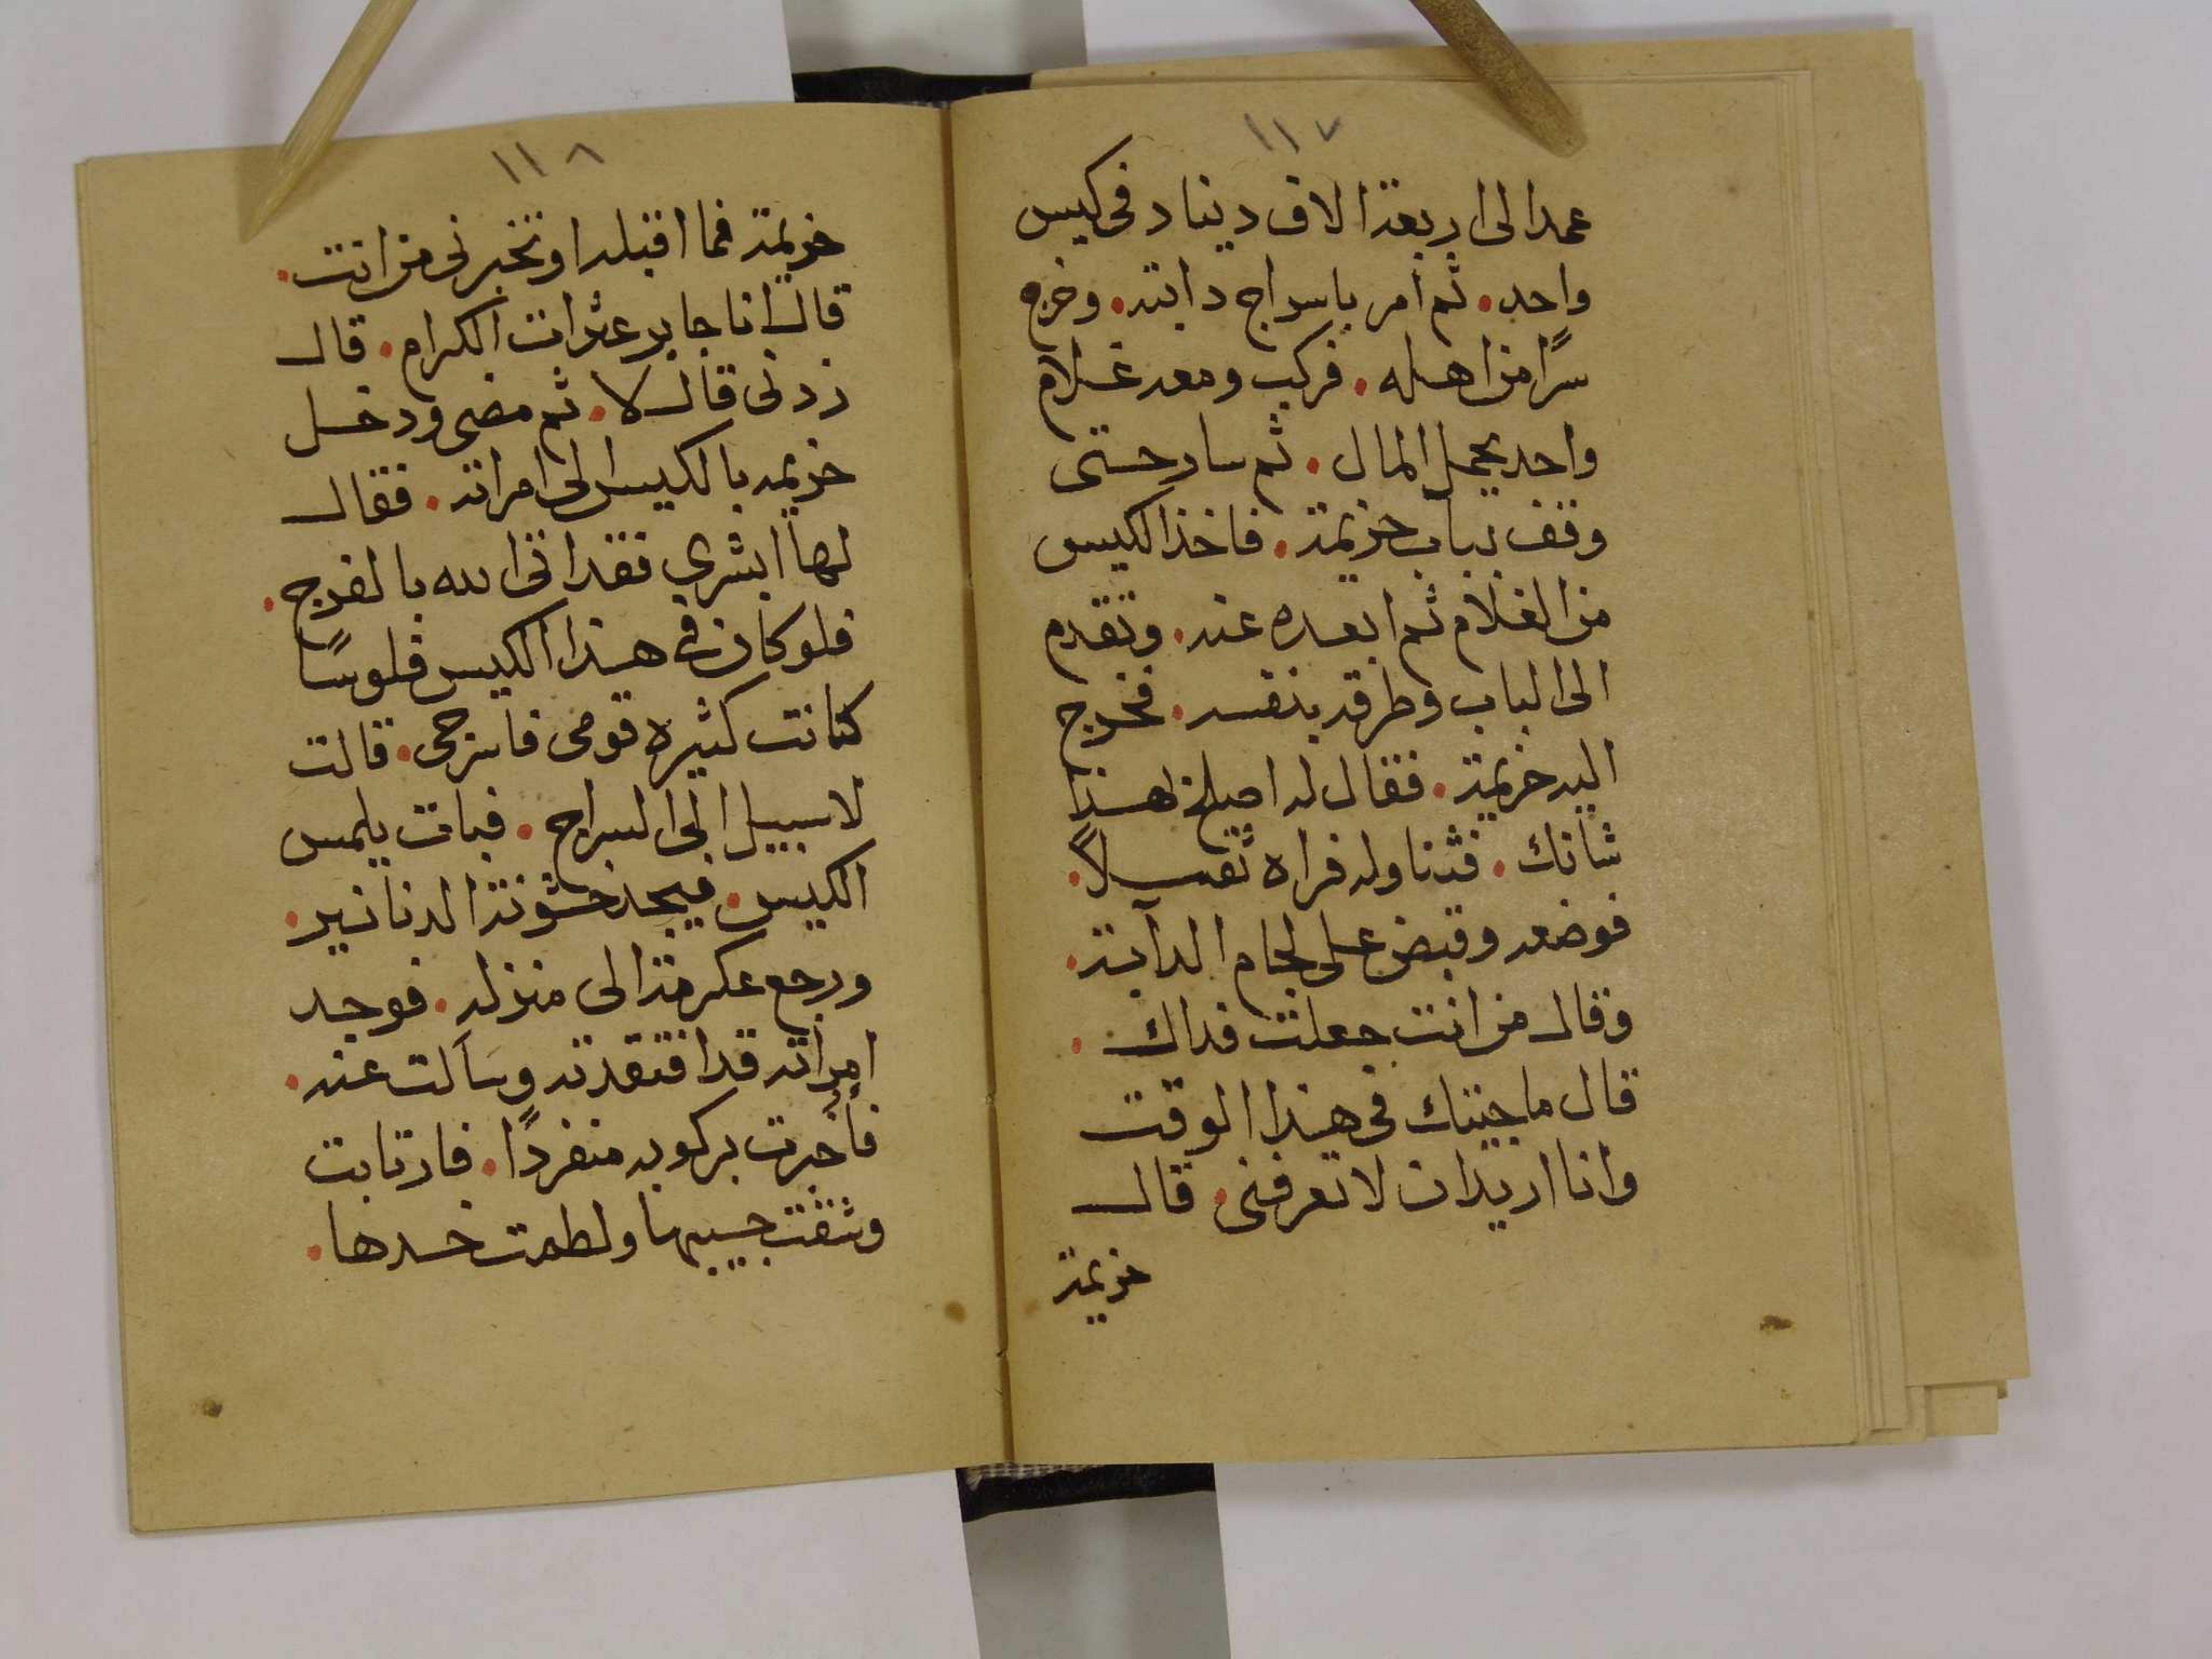 ١١٧
عمد الى اربعة الاف دينار فى كيس
واحد. ثم امر باسراج دابته. وخرج
سرًا من اهله. فركب ومعه غلام
واحد يحمل المال. ثم سار حتى
وقف بباب خزيمة. فاخذ الكيس
من الغلام ثم ابعده عنه. وتقدم
الى الباب وطرقه بنفسه. فخرج
اليه خزيمة. فقال له اصلح بهذا
شانك. فتناوله فراه ثقيلاً.
فوضعه وقبض على لجام الدآبة.
وقال من انت جعلت فداك.
قال ما جيتك فى هذا الوقت
وانا اريد ان لا تعرفنى. قال
خزيمة
١١٨
خزيمة فما اقبله او تخبرنى من انت.
قال انا جابر عثرات الكرام. قال
زدنى قال لا. ثم مضى ودخل
خزيمه بالكيس الى امراته. فقال
لها ابشري فقد اتى الله بالفرج.
فلو كان فى هذا الكيس فلوسًا
كانت كثيره قومى فاسرجى. قالت
لا سبيل الى السراج. فبات يلمس
الكيس. فيجد خشونة الدنانير.
ورجع عكرمة الى منزله. فوجد
امراته قد افتقدته وسَالت عنه.
فأخبرت بركوبه منفردًا. فارتابت
وشقت جيبها ولطمت خدها.